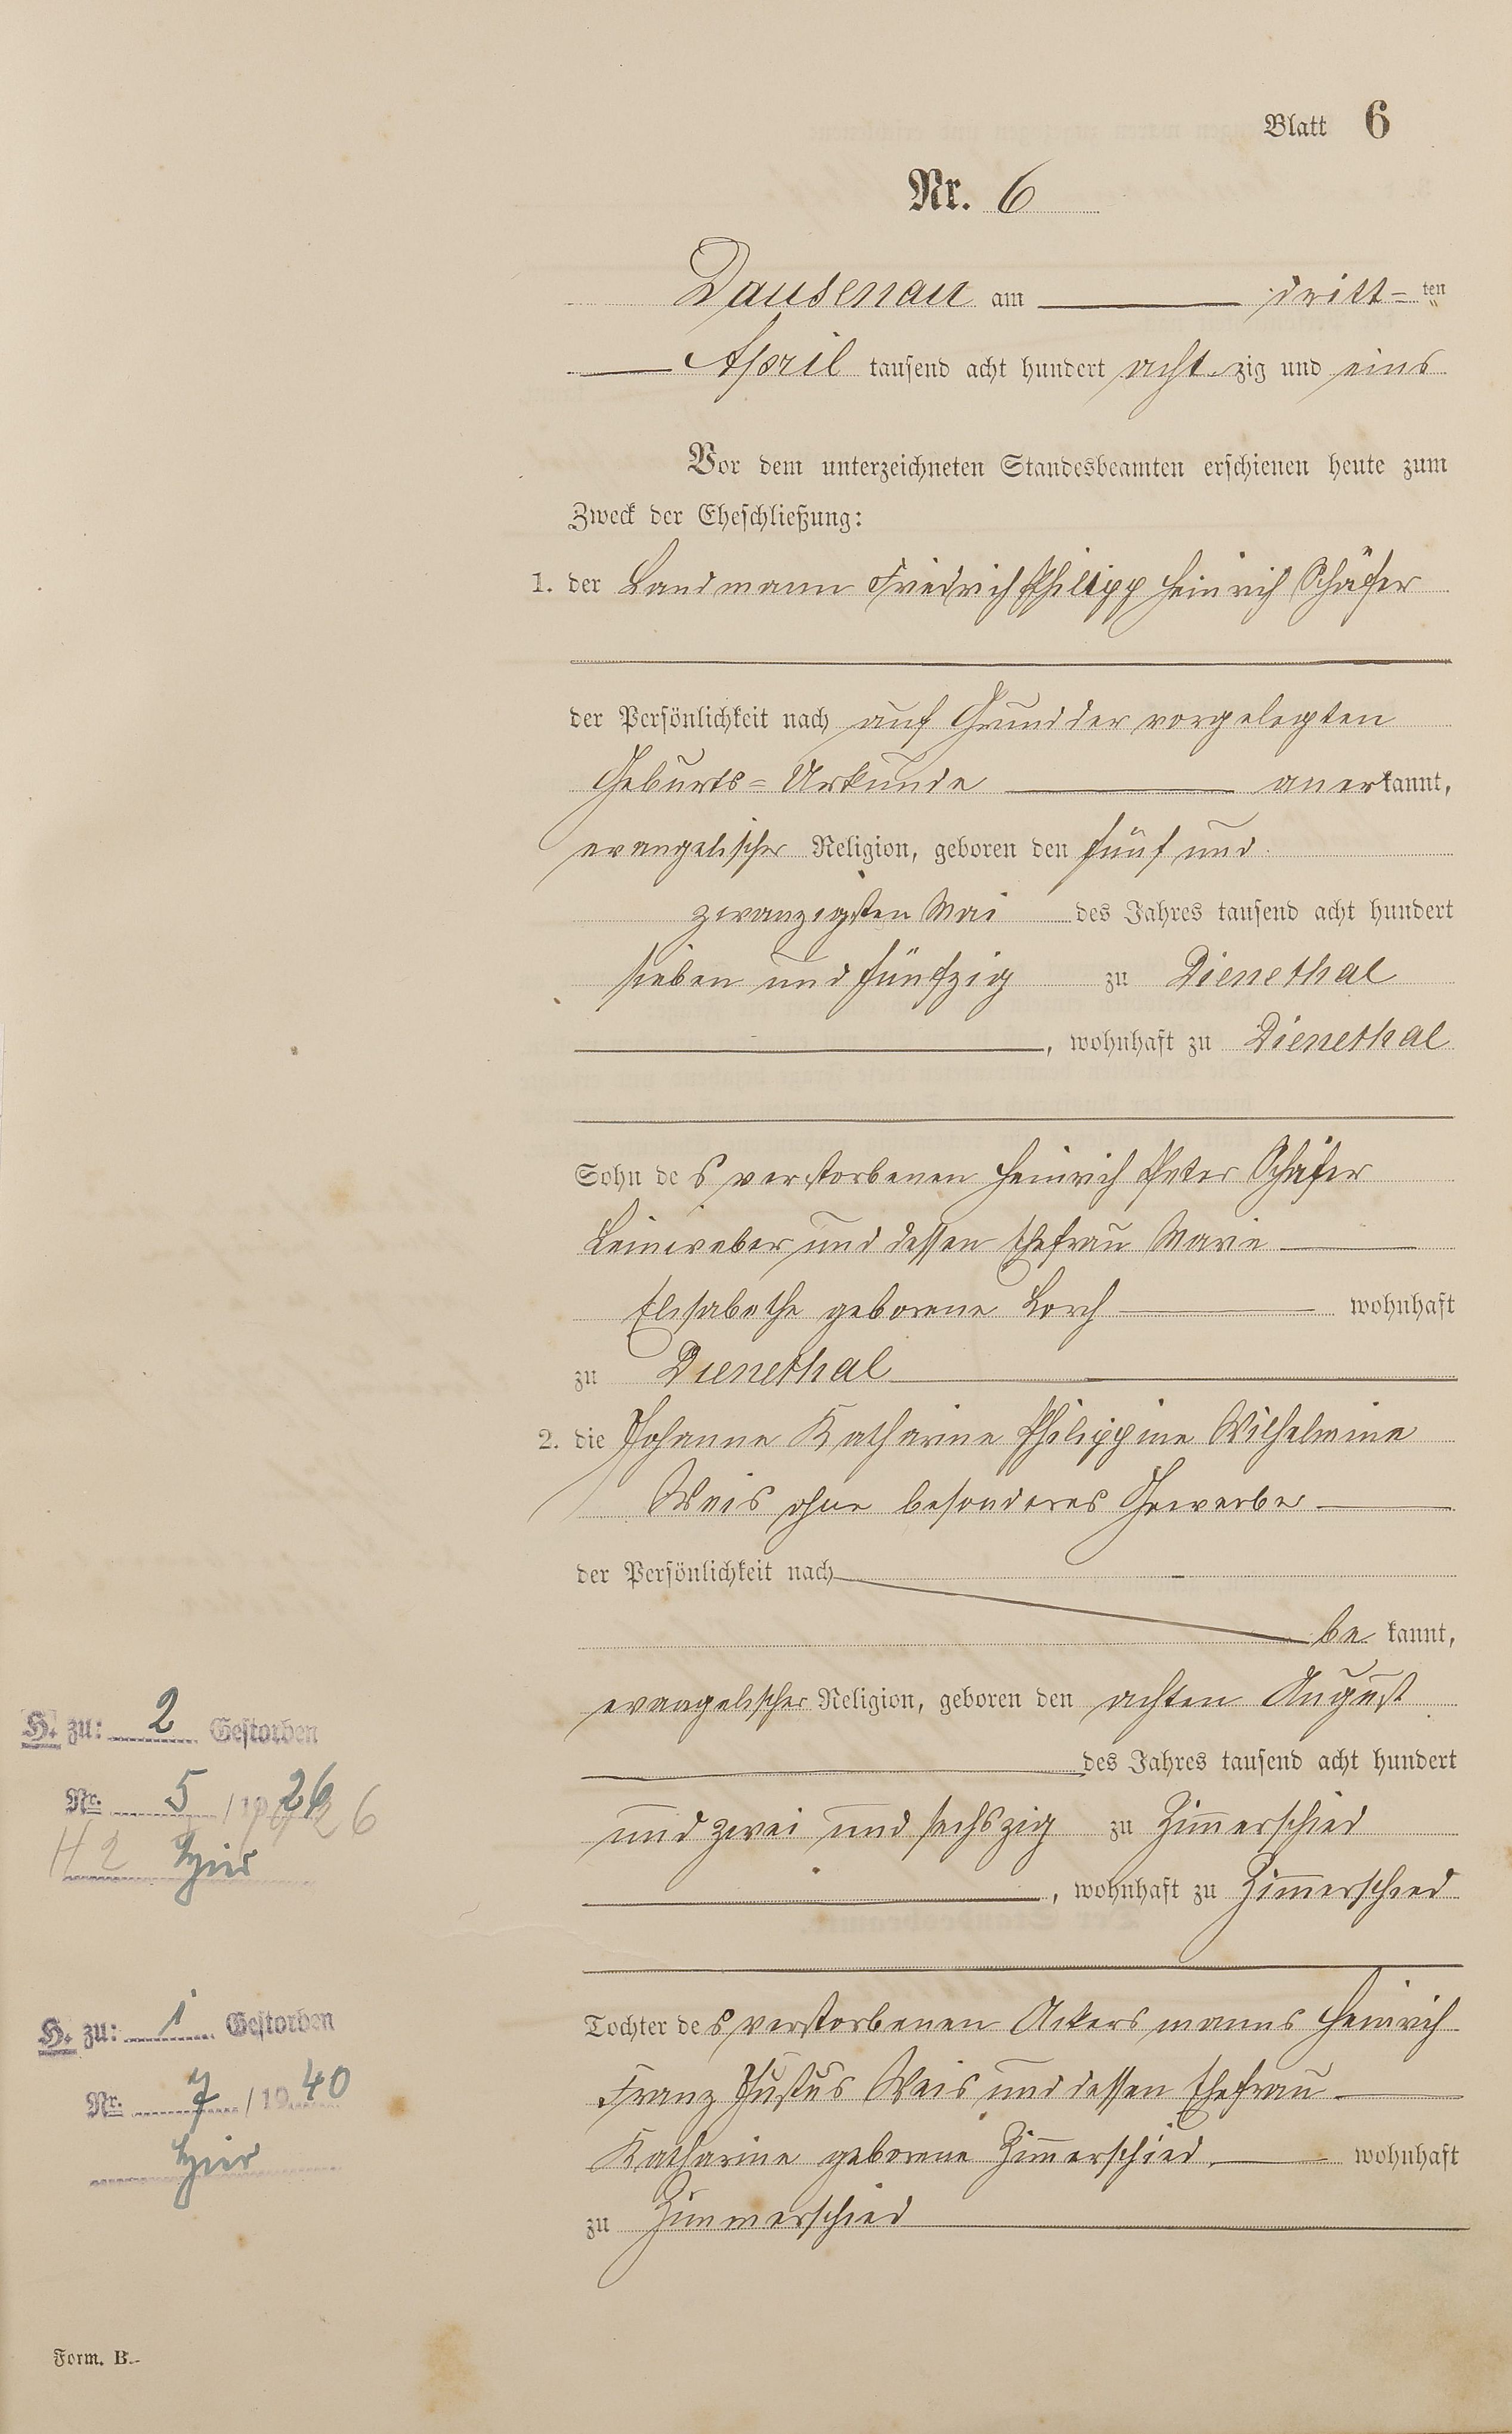 Blatt 6
Nr. 6
Dausenau am dritt=ten
April tausend acht hundert acht zig und eins
Vor dem unterzeichneten Standesbeamten erschienen heute zum
Zweck der Eheschließung:
1. der Landmann Friedrich Philipp Heinrich Schäfer
der Persönlichkeit nach auf Grund der vorgelegten
Geburts=Urkunde anerkannt,
evangelischer Religion, geboren den fünf und
zwanzigsten Mai des Jahres tausend acht hundert
sieben und fünfzig zu Dienethal
, wohnhaft zu Dienethal
Sohn des verstorbenen Heinrich Peter Schäfer
Leinweber und dessen Ehefrau Marie
Elisabethe geborene Lorch wohnhaft
zu Dienethal
2. die Johanne Katharine Philippine Wilhelmine
Weis ohne besonderes Gewerbe
der Persönlichkeit nach
be kannt,
evangelischer Religion, geboren den achten August
des Jahres tausend acht hundert
und zwei und sechszig zu Zimmerschied
, wohnhaft zu Zimmerschied
Tochter des verstorbenen Ackersmanns Heinrich
Franz Justus Weis und dessen Ehefrau
Katharine geborene Zimmerschied wohnhaft
zu Zimmerschied
H. zu: 2 Gestorben
Nr. 5 / 1926
H 2 hier
H. zu: 1 Gestorben
Nr. 7 / 1940
hier
Form. B.